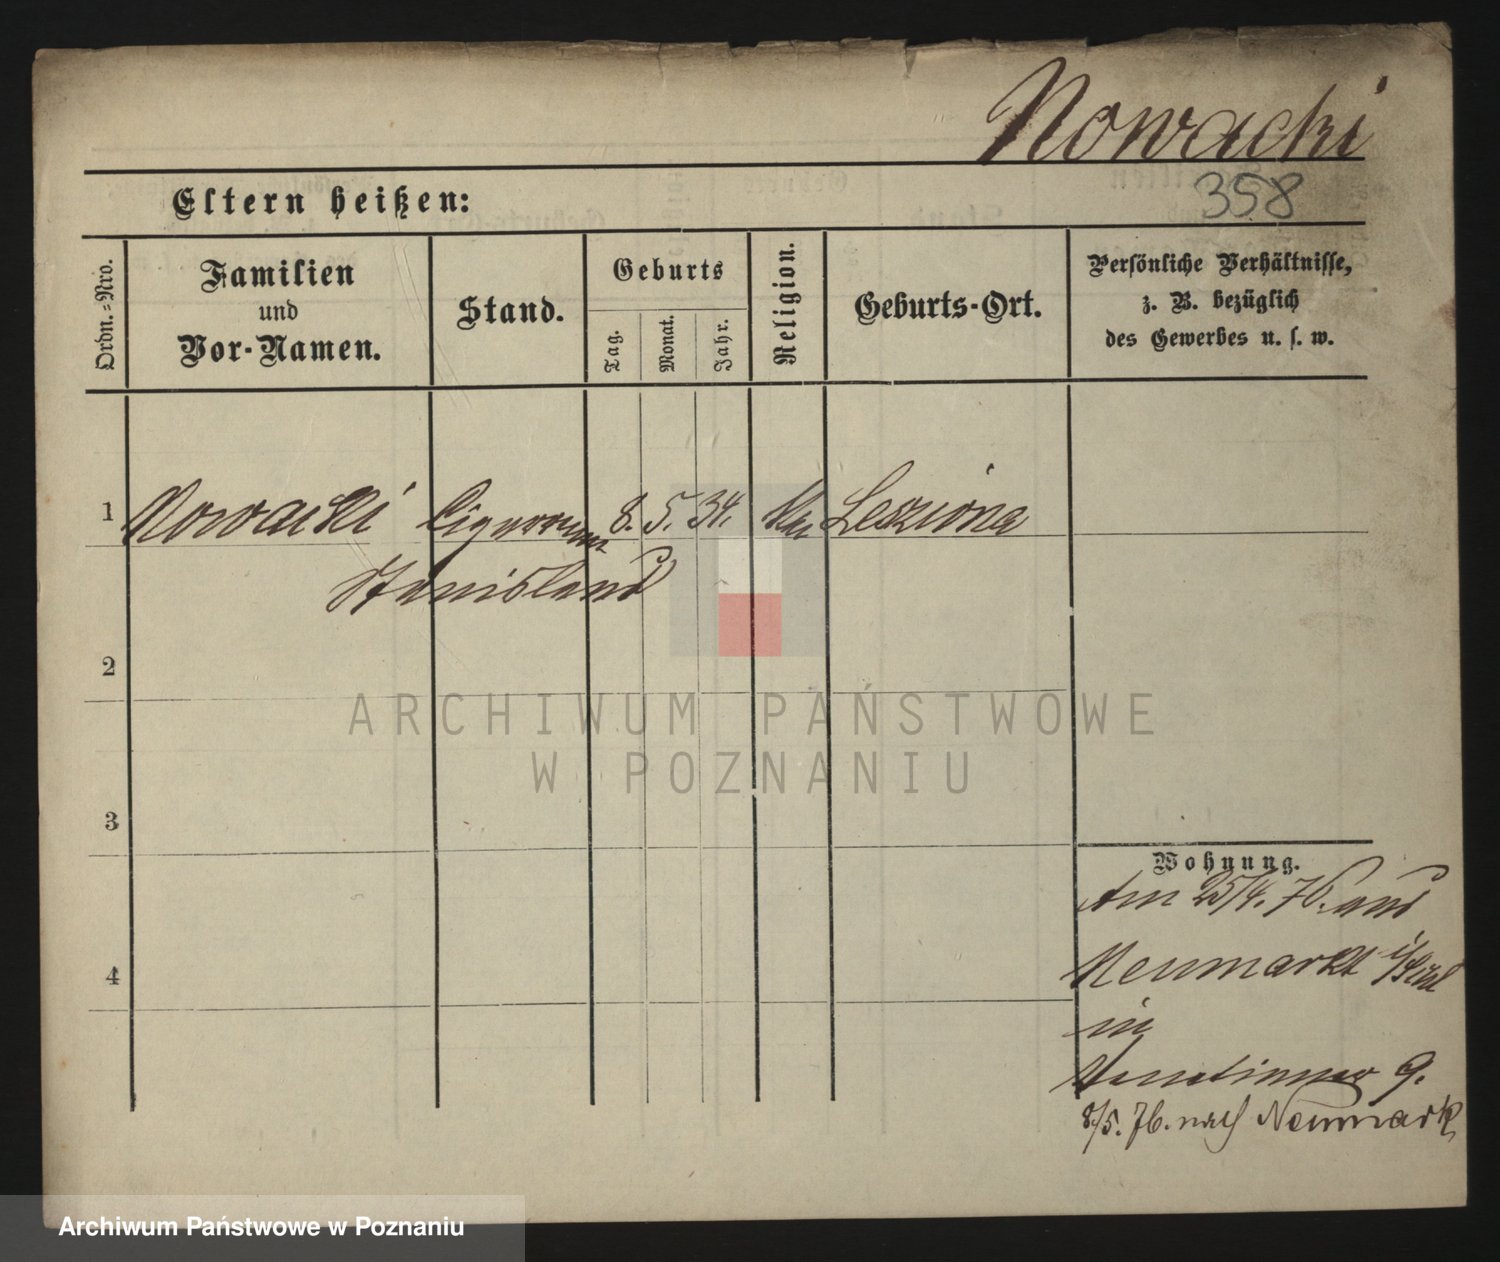 Nowacki
358
Eltern heißen:
Ordn.-Nro.
Familien
und
Vor-Namen.
Stand.
Geburts
Tag.
Monat.
Jahr.
Religion.
Geburts-Ort.
Persönliche Verhältnisse,
z. B. bezüglich
des Gewerbes u. s. w.
1 Nowacki 8. 5. 34.
Stanislaus
2
3
4
Wohnung.
Am 25/4. 76. aus
Neumarkt
in
Venetianer 9.
8/5. 76. nach Neumark
ARCHIWUM PAŃSTWOWE
W POZNANIU
Archiwum Państwowe w Poznaniu